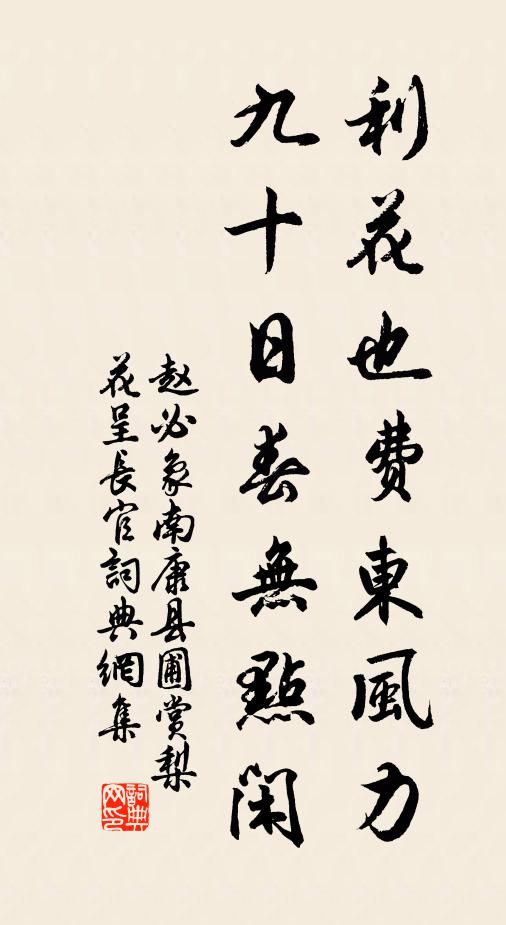 利花也費東風力
九十日春無點閑
赵必象南康县圃赏梨
花呈長官詞典網集
詞典
网印